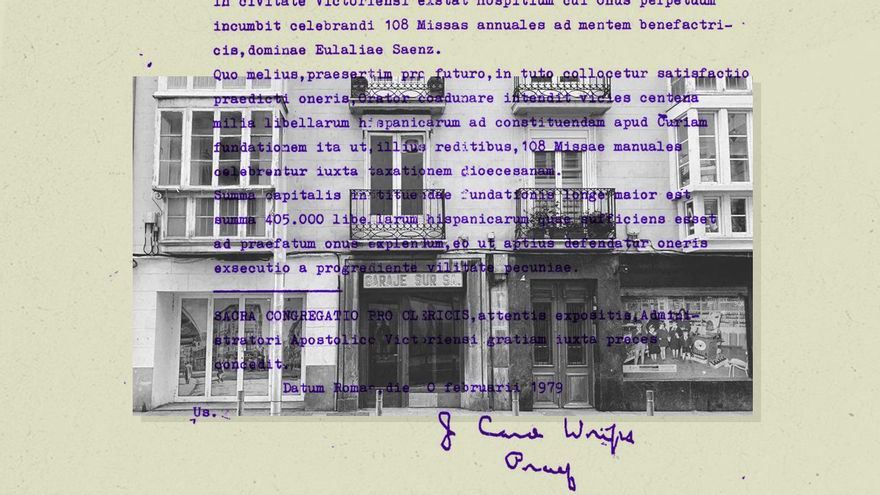 in civitate Victoriensi exstat Hospitium cui onus perpetuum
incumbit celebrandi 108 Missas annuales ad mentem benefactri-
cis,dominae Eulaliae Saenz.
Quo melius,praesertim pro futuro,in tuto collocetur satisfactio
praedicti oneris,Orator coadunare intendit vicies centena
milia libellarum hispanicarum ad constituendam apud Curiam
fundationem ita ut,illius reditibus,108 Missae manuales
celebrentur iuxta taxationem dioecesanam.
Summa capitalis instituendae fundationis longe maior est
summa 405.000 libellarum hispanicarum quae sufficiens esset
ad praefatum onus explendum,eo ut aptius defendatur oneris
exsecutio a progrediente vilitate pecuniae.
GARAJE SUR SA.
SACRA CONGREGATIO PRO CLERICIS,attentis expositis,Admini-
stratori Apostolico Victoriensi gratiam iuxta preces
concedit.
Datum Romae,die 0 februarii 1979
Us.
J Card Wright
Praef